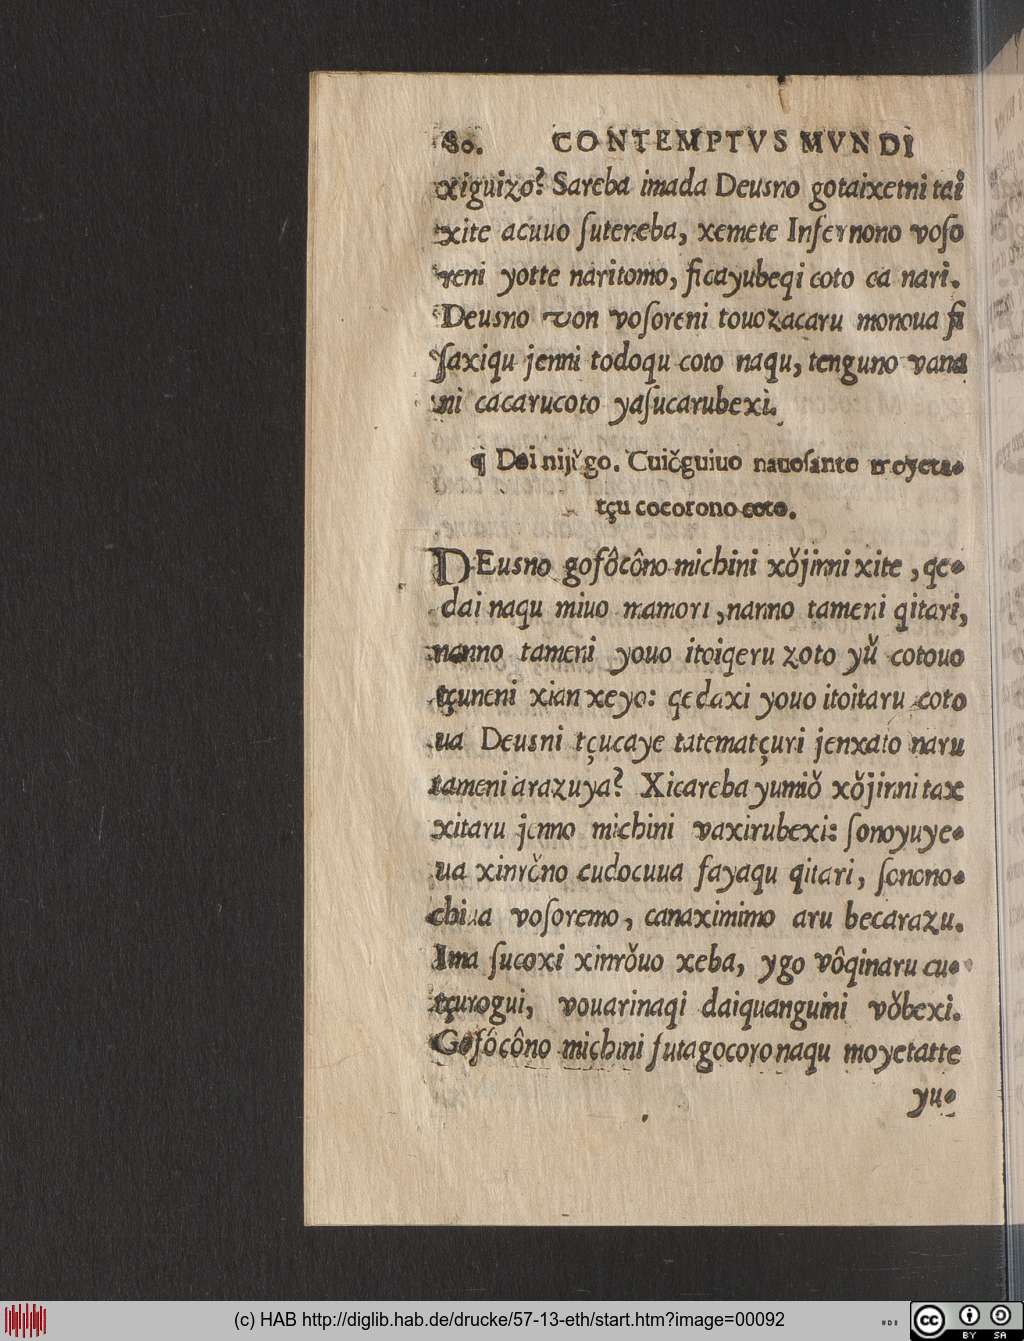 80. CONTEMPTVS MVNDI
xiguizo? Sareba imada Deusno gotaixetni tai
xite acuuo ſutereba, xemete Infernono voſo
reni yotte naritomo, ficayubeqi coto ca nari.
Deusno von voſoreni touozacaru monoua fi
ſaxiqu jenni todoqu coto naqu, tenguno vana
ni cacarucoto yaſucarubexi.
¶ Dai nijŭgo. Cuičguiuo nauoſanto moyeta-
tçu cocorono coto.
DEusno gofôcôno michini xǒjinni xite, qe-
dai naqu miuo mamori, nanno tameni qitari,
nanno tameni youo itoiqeru zoto yŭ cotouo
tçuneni xian xeyo: qedaxi youo itoitaru coto
ua Deusni tçucaye tatematçuri jenxato naru
tameni arazuya? Xicareba yumiǒ xǒjinni tax
xitaru jenno michini vaxirubexi: ſonoyuye-
ua xinrǒno cudocuua fayaqu qitari, ſonono-
chiua voſoremo, canaximimo aru becarazu.
Ima ſucoxi xinrǒuo xeba, ygo vôqinaru cu-
tçurogui, vouarinaqi daiquanguini vǒbexi.
Gofôcôno michini futagocoro naqu moyetatte
yu-
(c) HAB http://diglib.hab.de/drucke/57-13-eth/start.htm?image=00092
cc BY SA